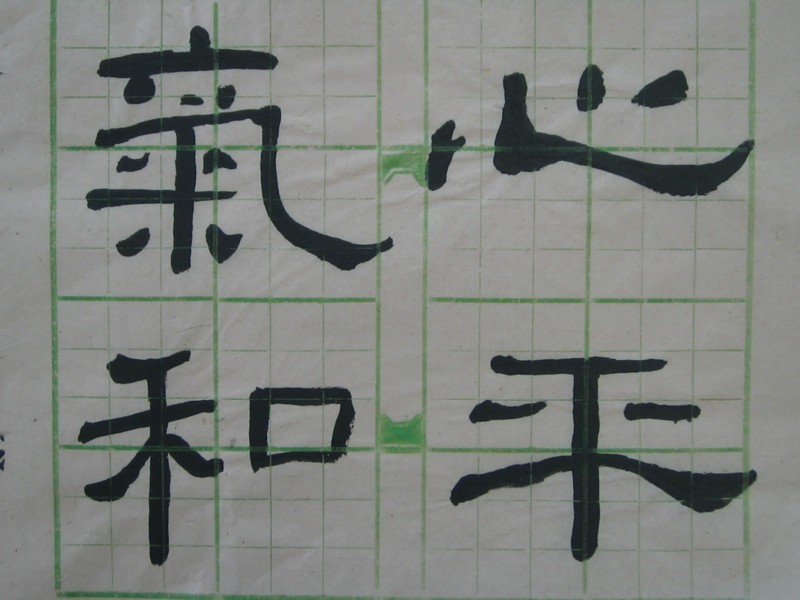 心平
氣和